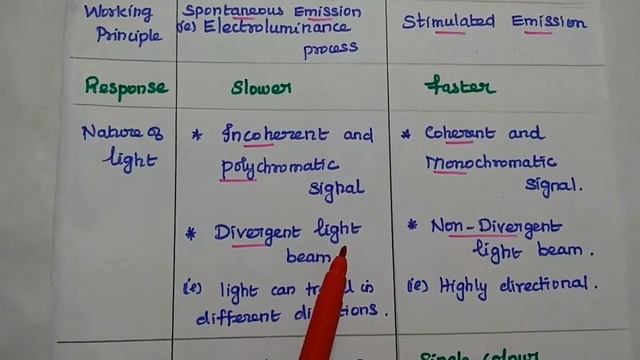 Working
Principle
Spontaneous Emission
(ie) Electroluminance
process
Stimulated Emission
Response
Slower
faster
Nature of
light
* Incoherent and
polychromatic
signal
* Divergent light
beam
(ie) light can in
different directions.
* Coherent and
Monochromatic
signal.
* Non-Divergent
light beam.
(ie) Highly directional.
Single colour